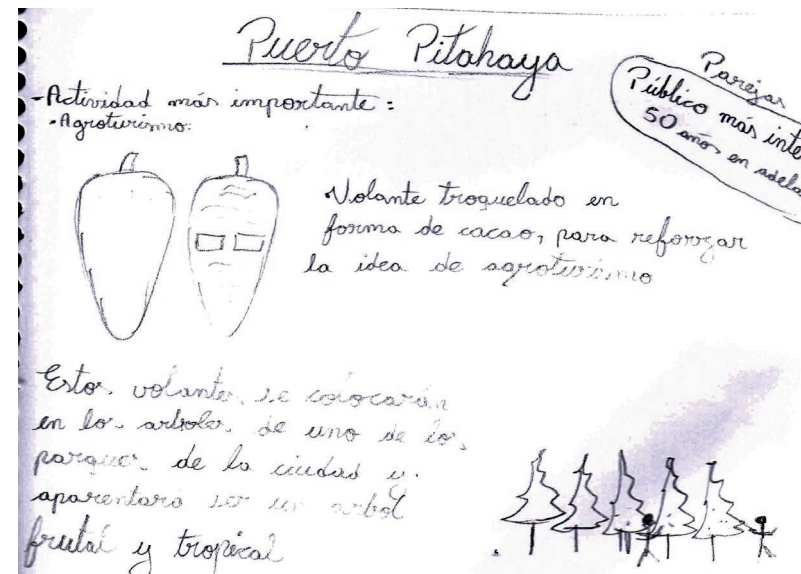 Puerto Pitahaya
Parejas
Público más inte
50 años en adela
-Actividad más importante:
•Agroturismo:
Volante troquelado en
forma de cacao, para reforzar
la idea de agroturismo
Estos volantes se colocarán
en los arboles de uno de los
parques de la ciudad y
aparentará ser un arbol
frutal y tropical